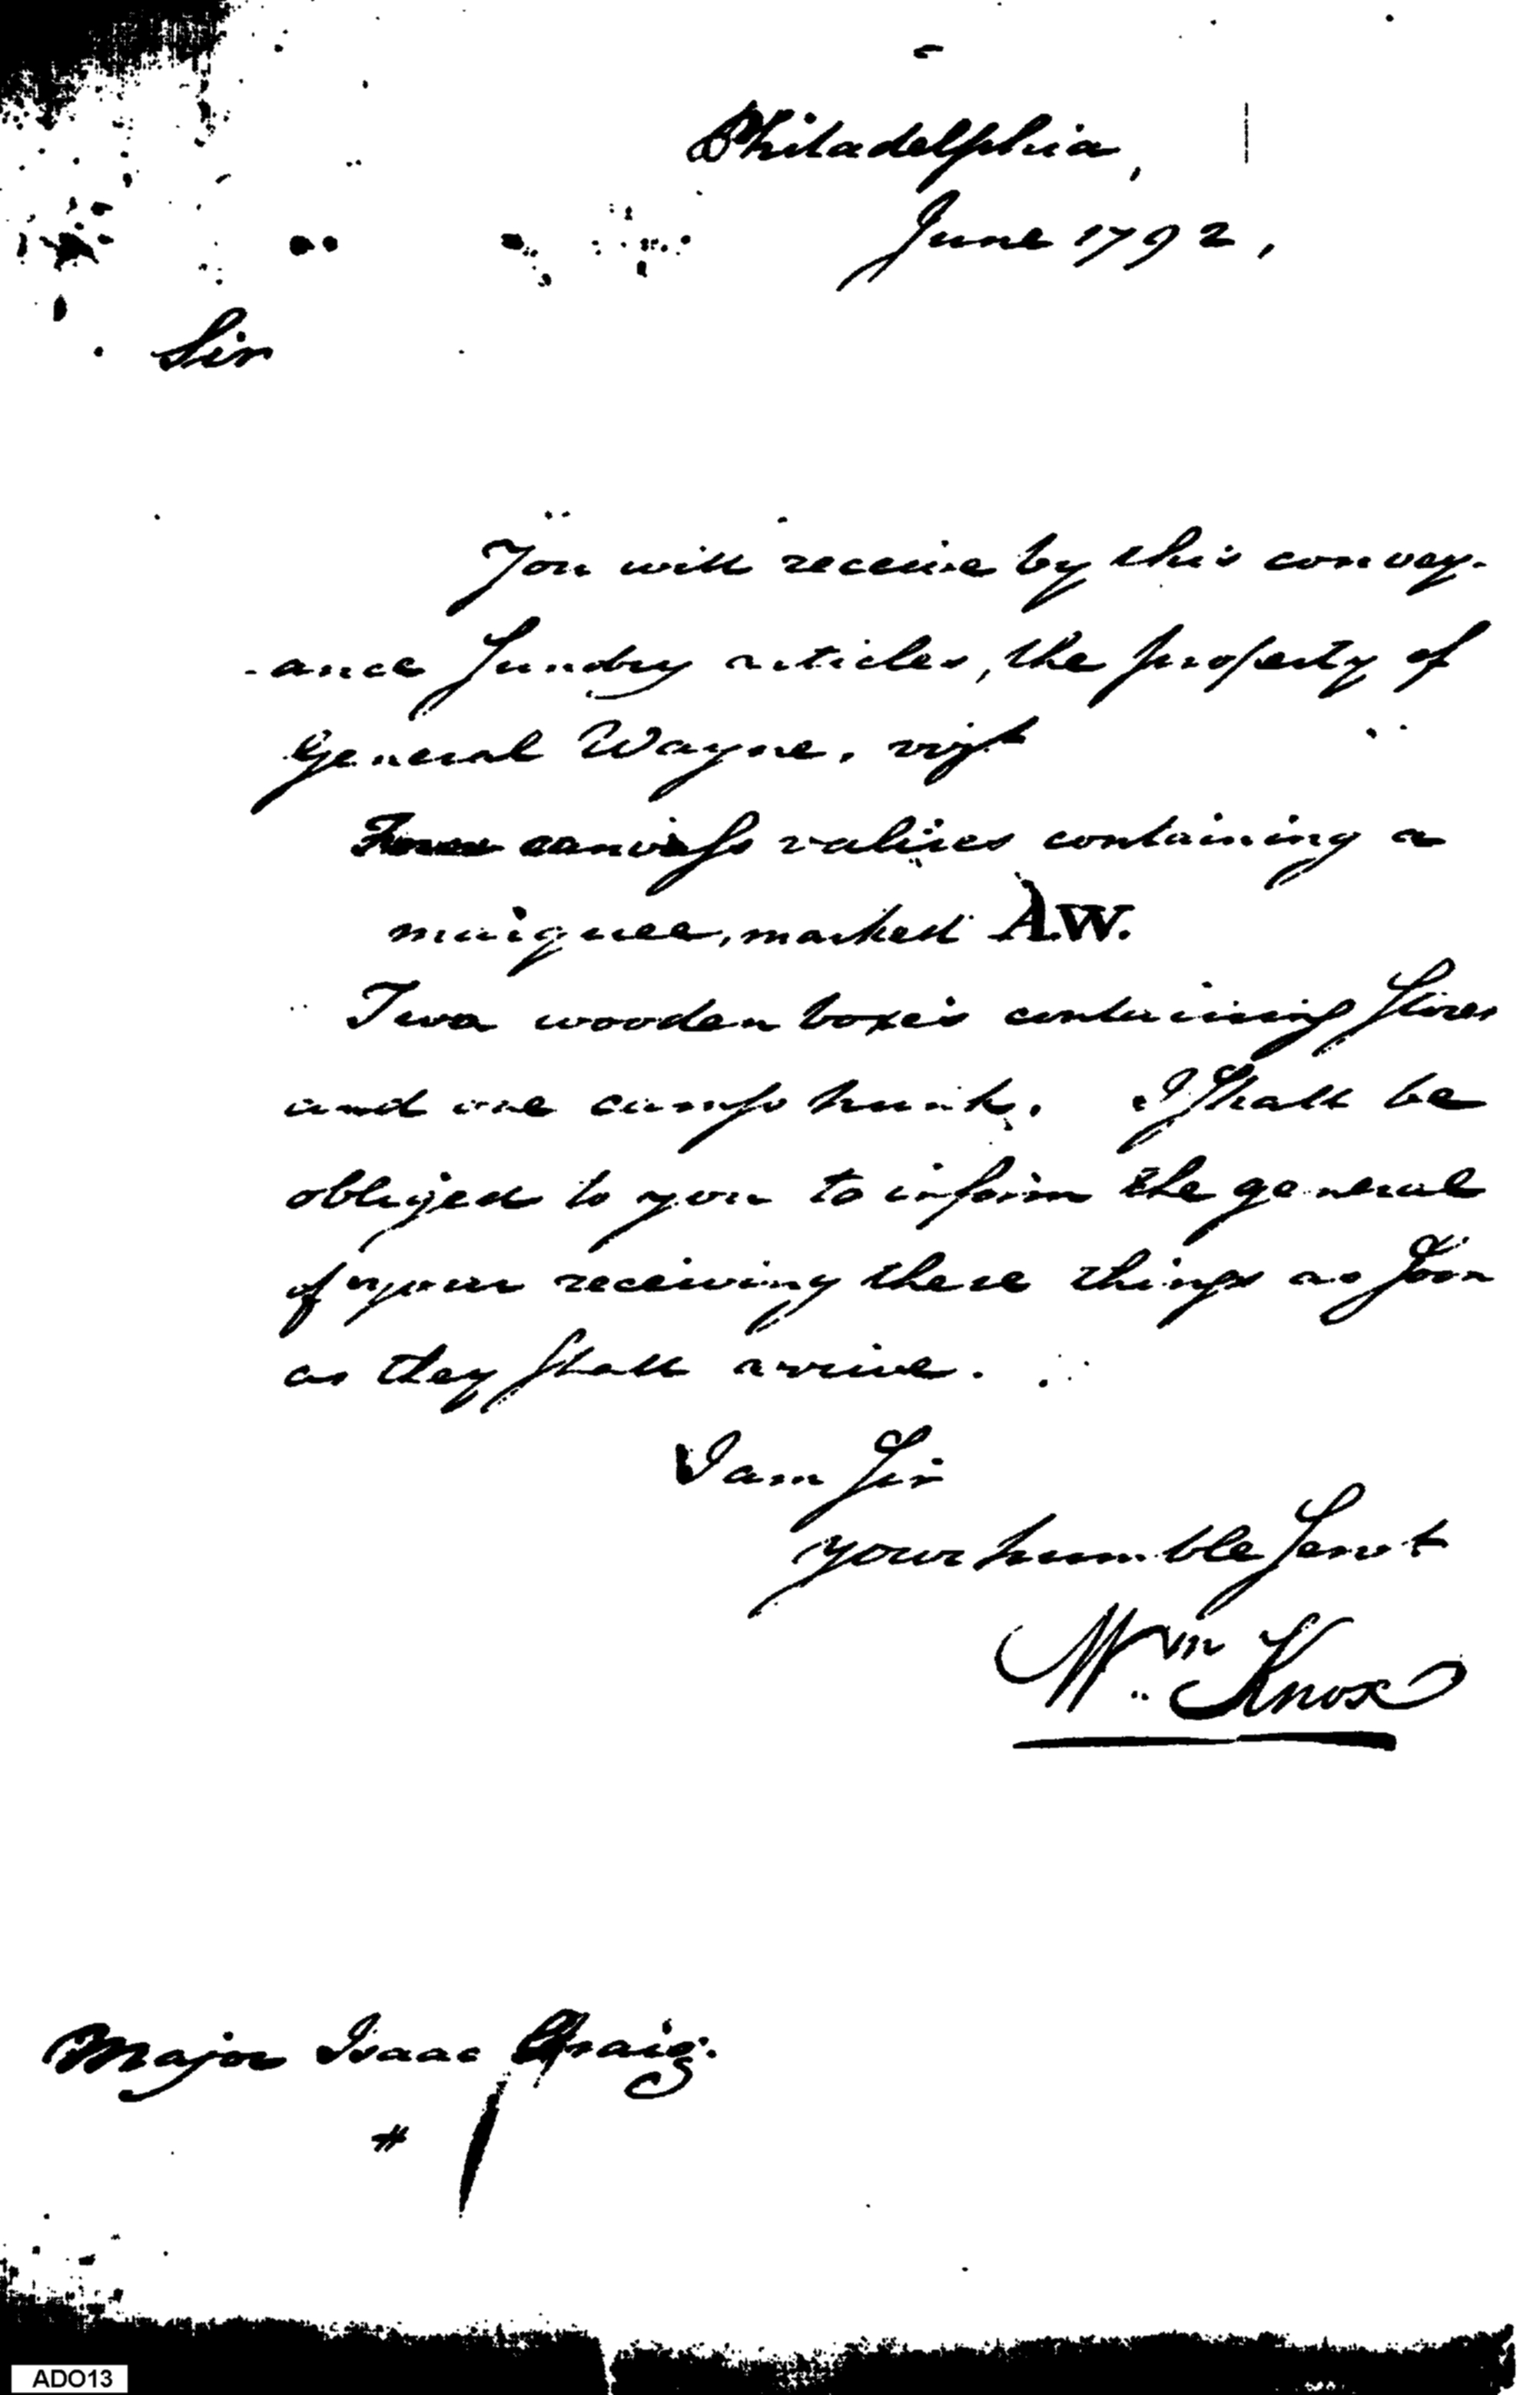 Philadelphia,
June 1792,
Sir
You will receive by this convey-
-ance Sundry articles, the property of
General Wayne, vizt
canvass valises containing a
marquee, marked A.W.
Two wooden boxes containing Stores
and one camp trunk. I Shall be
obliged to you to inform the general
of your receiving these things as Soon
as they Shall arrive.
I am Sir
your humble Servt
Wm Knox
Major Isaac Craig.
#
ADO13